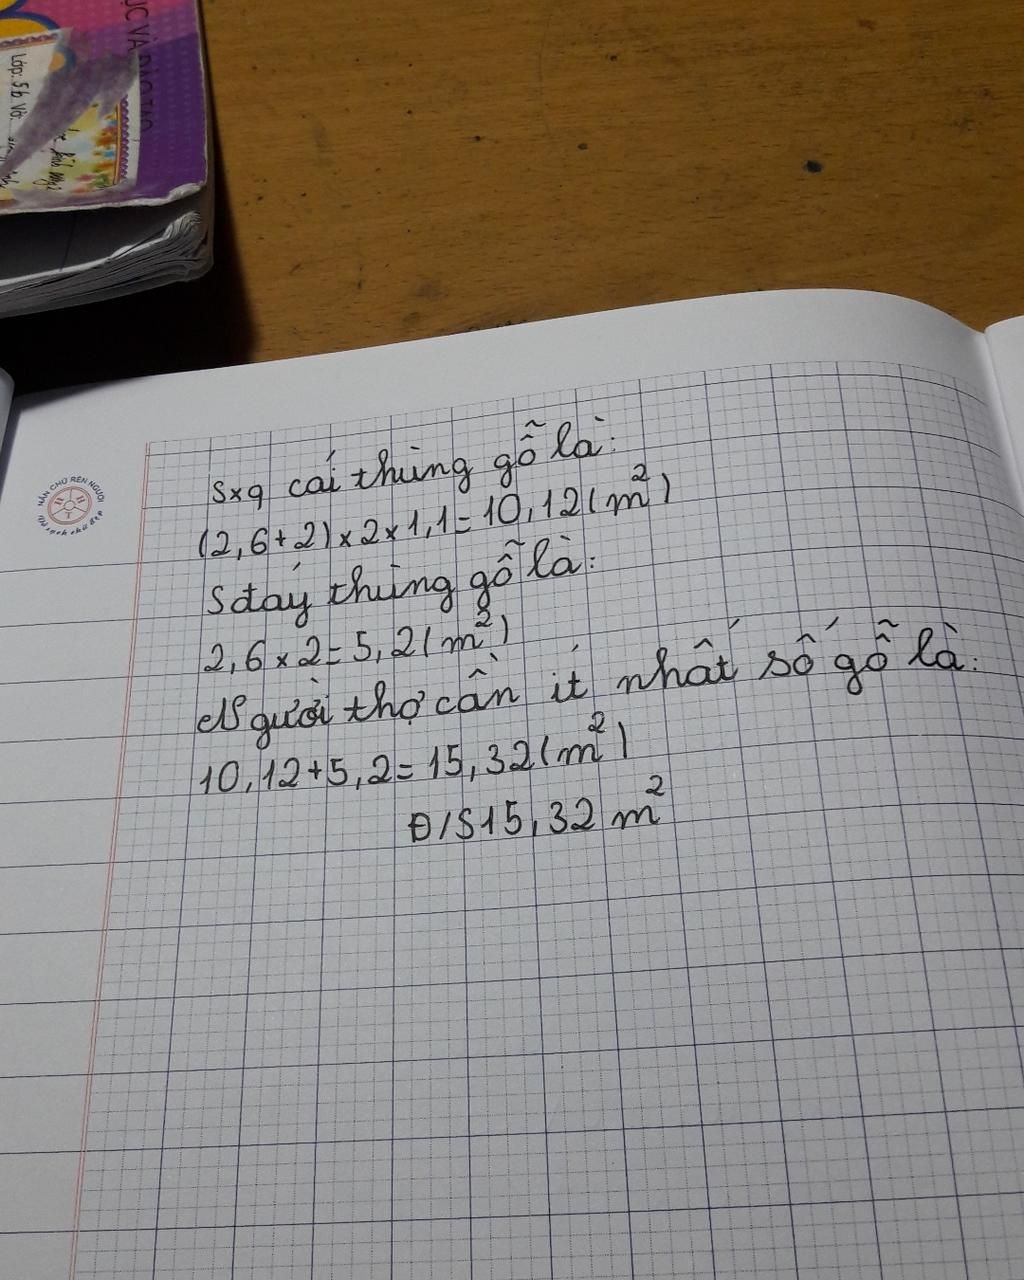 ỤC VÀ ĐÀO TẠO
Lớp: 5b
NẮN CHỮ RÈN NGƯỜI
Sxq cái thùng gỗ là:
(2,6+2)×2×1,1=10,12(m²)
S đáy thùng gỗ là:
2,6×2=5,2(m²)
Người thợ cần ít nhất số gỗ là:
10,12+5,2=15,32(m²)
Đ/S15,32 m²